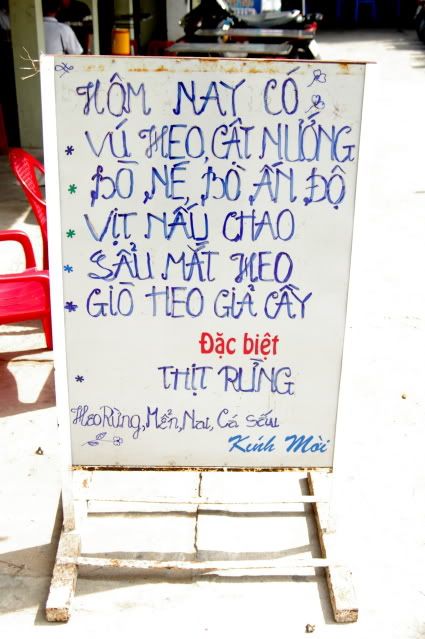 HÔM NAY CÓ
* VÚ HEO, CẬT NƯỚNG
* BÒ NÉ, BÒ ẤN ĐỘ
* VỊT NẤU CHAO
* SẨU MẮT HEO
* GIÒ HEO GIẢ CẦY
Đặc biệt
* THỊT RỪNG
Heo Rừng, Mển, Nai, Cá Sấu
Kính Mời